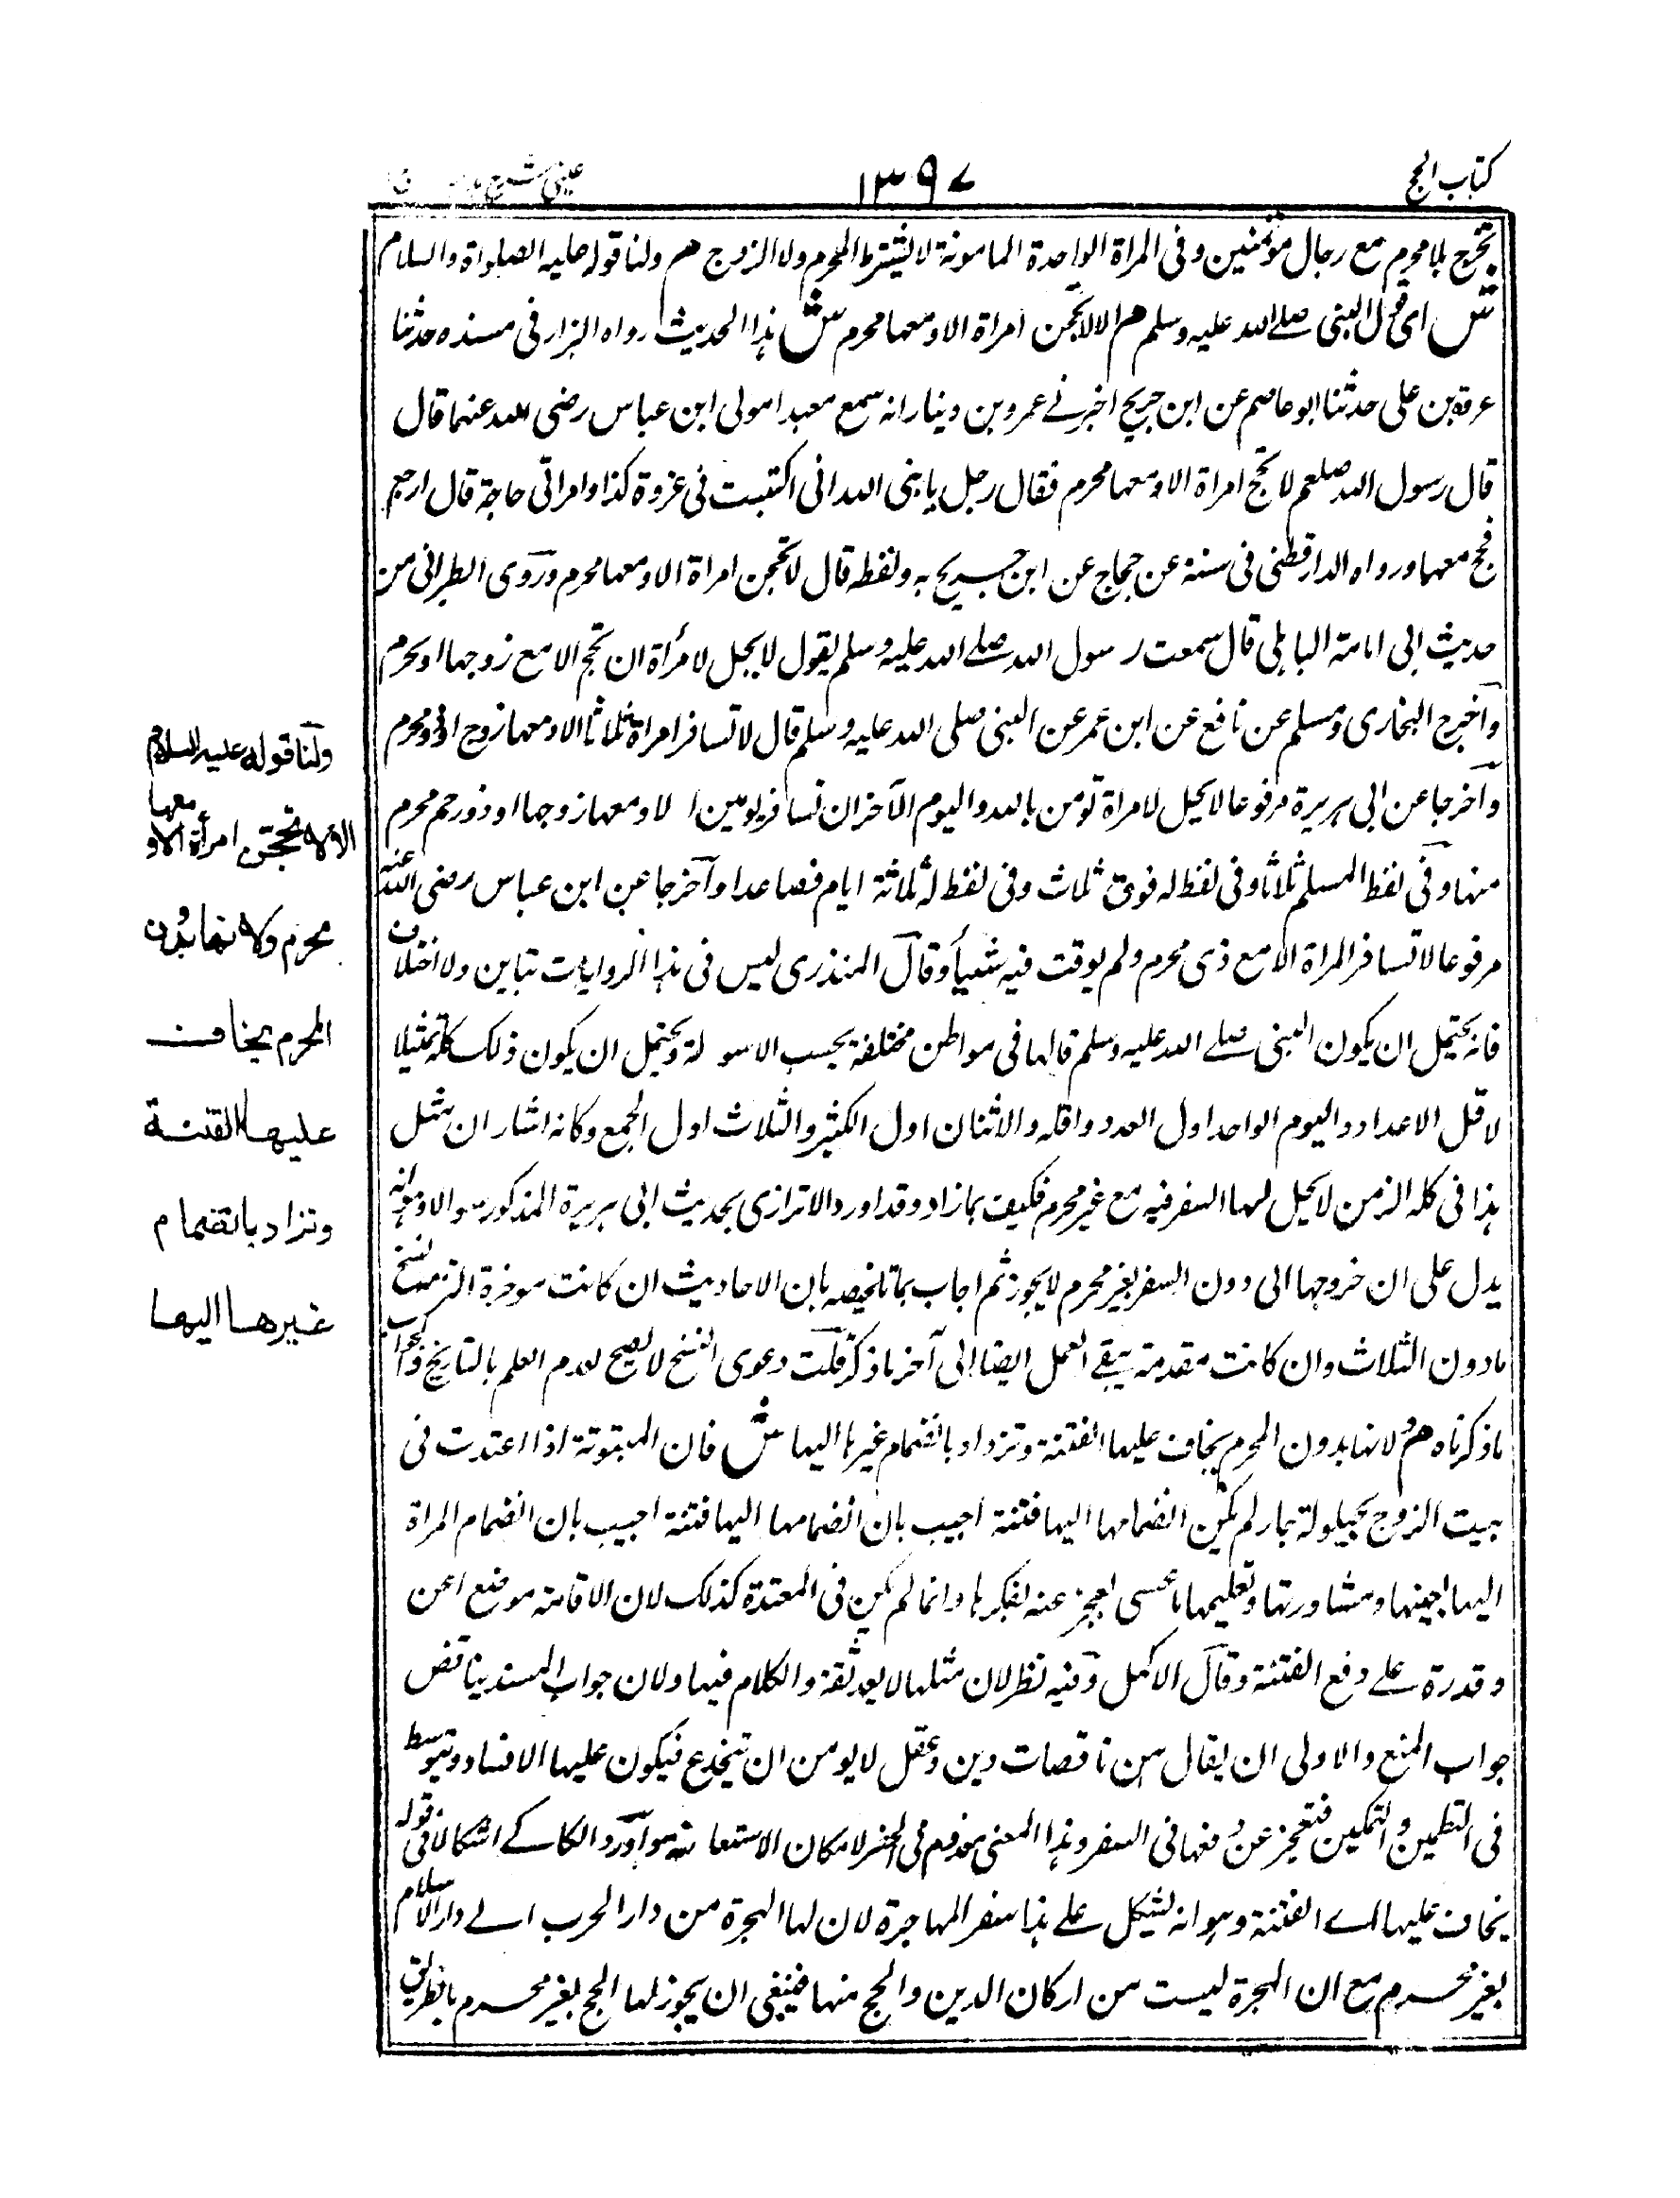 كتاب الحج
١٣٩٧
عينى شرح
تحج بلا محرم مع رجال مؤتمنين وفى المراة الواحدة المامونة لا يشترط المحرم ولا الزوج هم ولنا قوله عليه الصلواة والسلام
ش اى قول النبى صلے الله عليه وسلم هم الا لا تحجن امراة الا ومعها محرم ش هذا الحديث رواه البزار فى مسنده حدثنا
عروة بن على حدثنا ابو عاصم عن ابن جريج اخبرنے عمرو بن دينار انه سمع معبدا مولى ابن عباس رضى الله عنهما قال
قال رسول الله صلعم لا تحج امراة الا ومعها محرم فقال رجل يا نبى الله انى اكتتبت فى غزوة كذا وامراتى حاجة قال ارجع
فحج معها ورواه الدارقطنى فى سننه عن حجاج عن ابن جريج به ولفظه قال لا تحجن امراة الا ومعها محرم وروى الطبرانى من
حديث ابى امامة الباهلى قال سمعت رسول الله صلے الله عليه وسلم يقول لا يحل لامرأة ان تحج الا مع زوجها او محرم
واخرج البخارى ومسلم عن نافع عن ابن عمر عن النبى صلى الله عليه وسلم قال لا تسافر امراة ثلاثا الا ومعها زوج او ذو محرم
وآخرجا عن ابى هريرة مرفوعا لا يحل لامراة تومن بالله واليوم الآخر ان تسافر يومين الا ومعها زوجها او ذو رحم محرم
منها وفى لفظ المسلم ثلاثا وفى لفظ له فوق ثلاث وفى لفظ له ثلاثة ايام فصاعدا وآخرجا عن ابن عباس رضى الله عنه
مرفوعا لا تسافر المراة الا مع ذى محرم ولم يوقت فيه شيأ وقال المنذرى ليس فى هذا الروايات تباين ولا اختلاف
فانه يحتمل ان يكون النبى صلے الله عليه وسلم قالها فى مواطن مختلفة بحسب الاسولة ويحتمل ان يكون ذلك كله تمثيلا
لاقل الاعداد واليوم الواحد اول العدد واقله والاثنان اول الكثير والثلاث اول الجمع وكانه اشار ان مثل
هذا فى كله الزمن لا يحل لها السفر فيه مع غير محرم فكيف بما زاد وقد اورد الاترازى بحديث ابى هريرة المذكور سوالا وهو انه
يدل على ان خروجها الى دون السفر بغير محرم لا يجوز ثم اجاب بما تلخيصه بان الاحاديث ان كانت موخرة الزمن نسخ
مادون الثلاث وان كانت مقدمة يبقے العمل ايضا الى آخر ما ذكر قلت دعوى النسخ لا يصح لعدم العلم بالتاريخ والجواب
ما ذكرناه هم ولانها بدون المحرم يخاف عليها الفتنة وتزداد بانضمام غيرها اليها ش فان المبتوتة اذا اعتدت فى
بيت الزوج بحيلولة بمار لم يكن انضمامها اليها فتنة اجيب بان انضمامها اليها فتنة اجيب بان انضمام المراة
اليها بعينها ومشاورتها وتعليمها ما عسى تعجز عنه بفكرها وانما لم يكن فى المعتدة كذلك لان الاقامة موضع امن
وقدرة علے دفع الفتنة وقال الاكمل وفيه نظر لان مثلها لا يعد ثقة والكلام فيها ولان جواب السند يناقض
جواب المنع والاولى ان يقال هن ناقصات دين وعقل لا يومن ان تنخدع فيكون عليها الافساد وتتوسط
فى التطمين والتمكين فتعجز عن دفعها فى السفر وهذا المعنى معدوم فى الحضر لامكان الاستعانة واورد الكاكے اشكالا فى قوله
يخاف عليها اے الفتنة وهو انه يشكل علے هذا سفر المهاجرة لان لها الهجرة من دار الحرب الے دار الاسلام
بغير محرم مع ان الهجرة ليست من اركان الدين والحج منها فينبغى ان يجوز لها الحج بغير محرم بالطريق
ولنا قوله عليه السلام
الا لا تحجن امرأة الا و معها
محرم ولانها بدون
المحرم يخاف
عليها الفتنة
وتزاد بانضمام
غيرها اليها